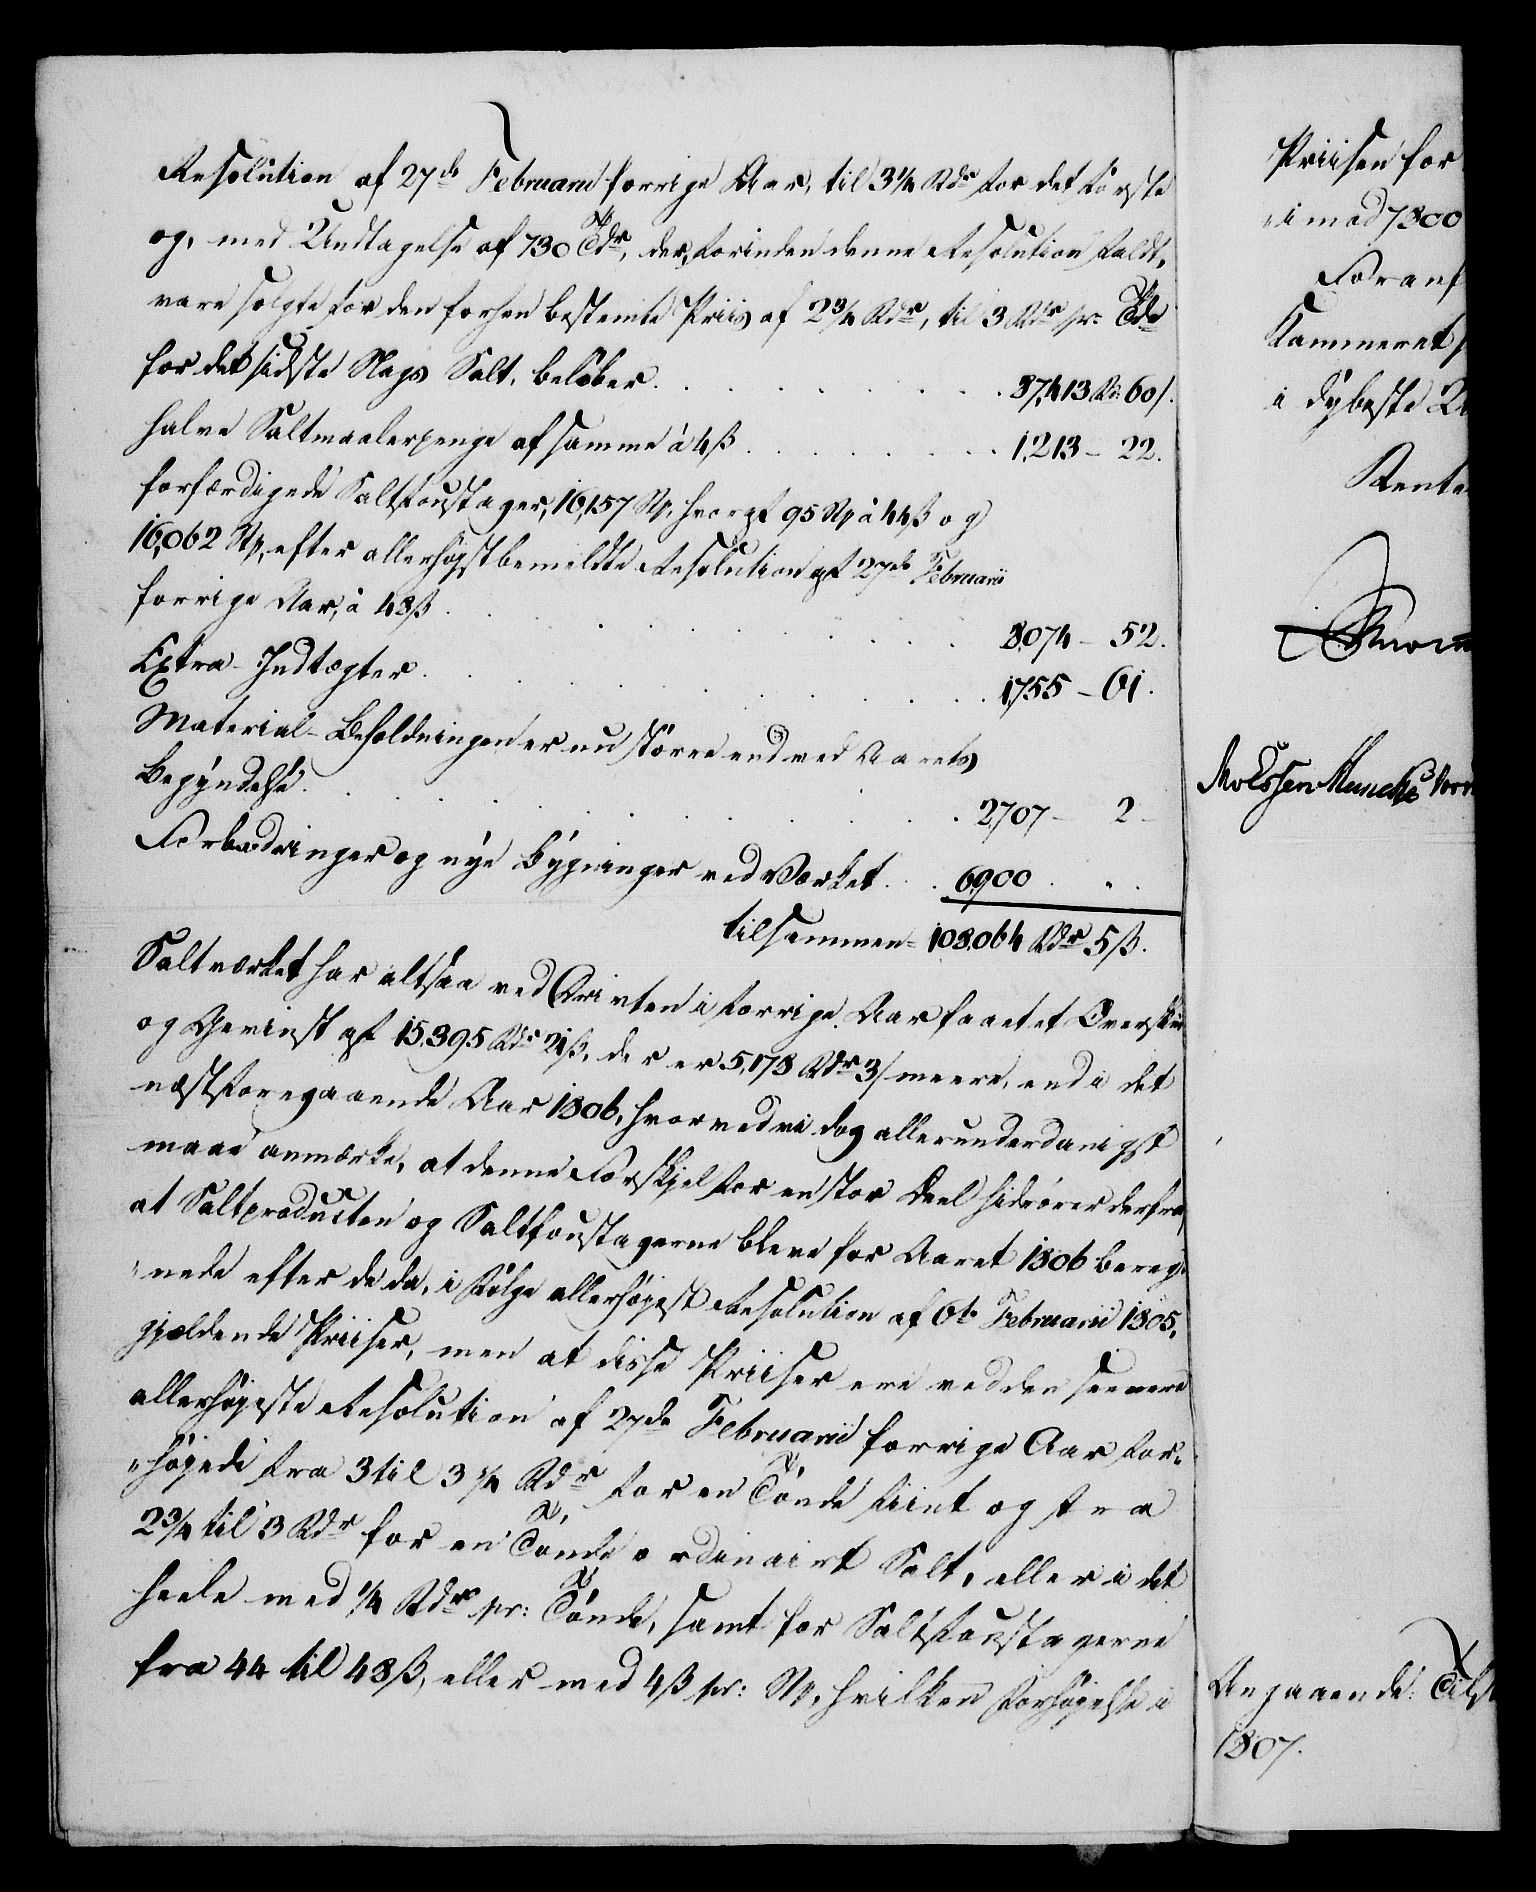 Resolution af 27de Februarii forrige Aar, til 3 1/4 Rdr for det første
og, med Undtagelse af 730 Tdr, der, forinden denne Resolution faldt,
vare solgte for den forhen bestemte Priis af 2 3/4 Rdr, til 3 Rdr pr: Tde
for det sidste Slags Salt, beløber . . . 87,413 Rd: 60 s.
halve Saltmaalerpenge af samme à 4 ß . . . 1,213 – 22.
forfærdigede Saltfoustager, 16,157 Stk, hvoraf 95 Stk à 44 ß og
16,062 Stk, efter allerhøystbemeldte Resolution af 27de Februarii
forrige Aar, à 48 ß . . . 8,074 – 52.
Extra-Indtægter . . . 1,755 – 61.
Material-Beholdningen er nu større end ved Aarets
Begyndelse . . . 2,707 – 2 –
Forbedringer og nye Bygninger ved Værket . . 6,900 . . .
tilsammen = 108,064 Rdr 5 ß.
Saltværket har altsaa ved Driften i forrige Aar faaet et Overskud
og Gevinst af 15,395 Rdr 21 ß, der er 5,178 Rdr 3 s meere, end i det
næstforegaaende Aar 1806, hvorved vi dog allerunderdanigst
maae anmærke, at denne Forskjel for en stor Deel hidrører derfra,
at Saltproducten og Saltfoustagerne bleve for Aaret 1806 bereg-
nede efter de da, i følge allerhøyest Resolution af 6te Februarii 1805,
gjældende Priiser, men at disse Priiser ere ved den seenere
allerhøyeste Resolution af 27de Februarii forrige Aar for-
høyede fra 3 til 3 1/4 Rdr for en Tønde fiint og fra
2 3/4 til 3 Rdr for en Tønde ordinairt Salt, eller i det
heele med 1/4 Rdr pr: Tønde, samt for Saltfoustagerne
fra 44 til 48 ß, eller med 4 ß pr: Stk, hvilken Forhøyelse i
Priisen for
imod 7800
Foranf
Kammeret
i dybeste
Rente
Angaaende: Tilst
1807.